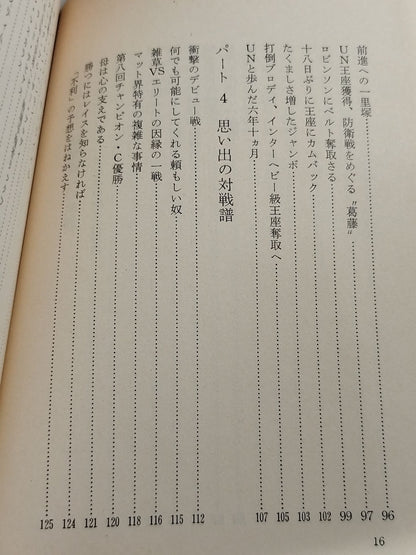 前進への一里塚 96
UN王座獲得、防衛戦をめぐる〝葛藤〟 97
ロビンソンにベルト奪取さる 99
十八日ぶりに王座にカムバック 102
たくましさ増したジャンボ 103
打倒ブロディ、インターヘビー級王座奪取へ 105
UNと歩んだ六年十ヵ月 107
パート4 思い出の対戦譜
衝撃のデビュー戦 112
何でも可能にしてくれる頼もしい奴 115
雑草VSエリートの因縁の一戦 116
マット界特有の複雑な事情 118
第八回チャンピオン・C優勝 120
母は心の支えである 121
勝つにはレイスを知らなければ 124
〝不利〟の予想をはねかえす 125
16